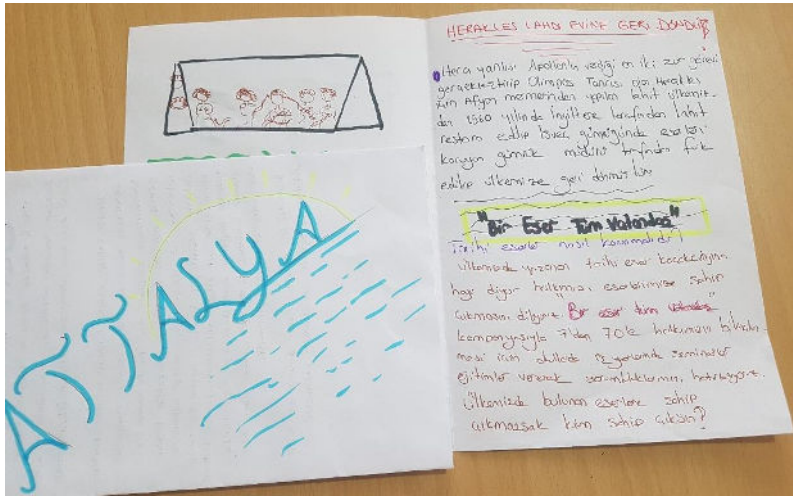 ATTALYA
HERAKLES LAHDİ EVİNE GERİ DÖNDÜ
Hera yanlısı Apollonla verdiği on iki zor görevi
gerçekleştirip Olimpos Tanrısı Herakles
için Afyon mermerinden yapılan lahit ülkemiz-
den 1960 yılında İngiltere tarafından lahit
restore edilip İsviçre gümrüğünde eserleri
koruyan gümrük müdürü tarafından fark
edilip ülkemize geri dönmüştür
"Bir Eser Tüm Vatandaş"
Tarihi eserler nasıl korunmalıdır!
ülkemizde yaşanan tarihi eser kaçakçılığına
hayır diyor halkımızı eserlerimize sahip
çıkmasını diliyoruz. "Bir eser tüm vatandaş"
kampanyasıyla 7'den 70'e halkımızın bilinçlen-
mesi için okullarda seminerler
eğitimler vererek sorumluluklarımızı hatırlatıyoruz.
ülkemizde bulunan eserlere sahip
çıkmazsak kim sahip çıksın?